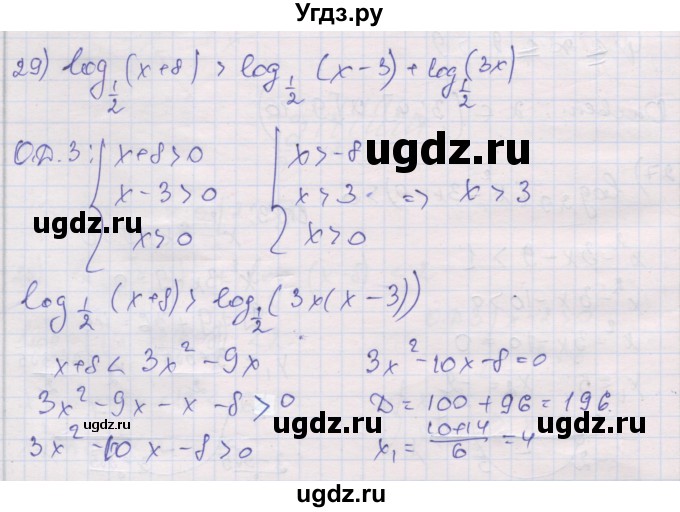 Угдз.ру
29) log_{1/2}(x+8) > log_{1/2}(x-3) + log_{1/2}(3x)
О.Д.З: { x+8>0 { x>-8
x-3>0 x>3 => x>3
x>0 x>0
ugdz.ru
ugdz.ru
log_{1/2}(x+8) > log_{1/2}(3x(x-3))
x+8 < 3x²-9x 3x²-10x-8=0
3x²-9x-x-8>0 D=100+96=196
3x²-10x-8>0 x₁=(10+14)/6=4
ugdz.ru
ugdz.ru
ugdz.ru